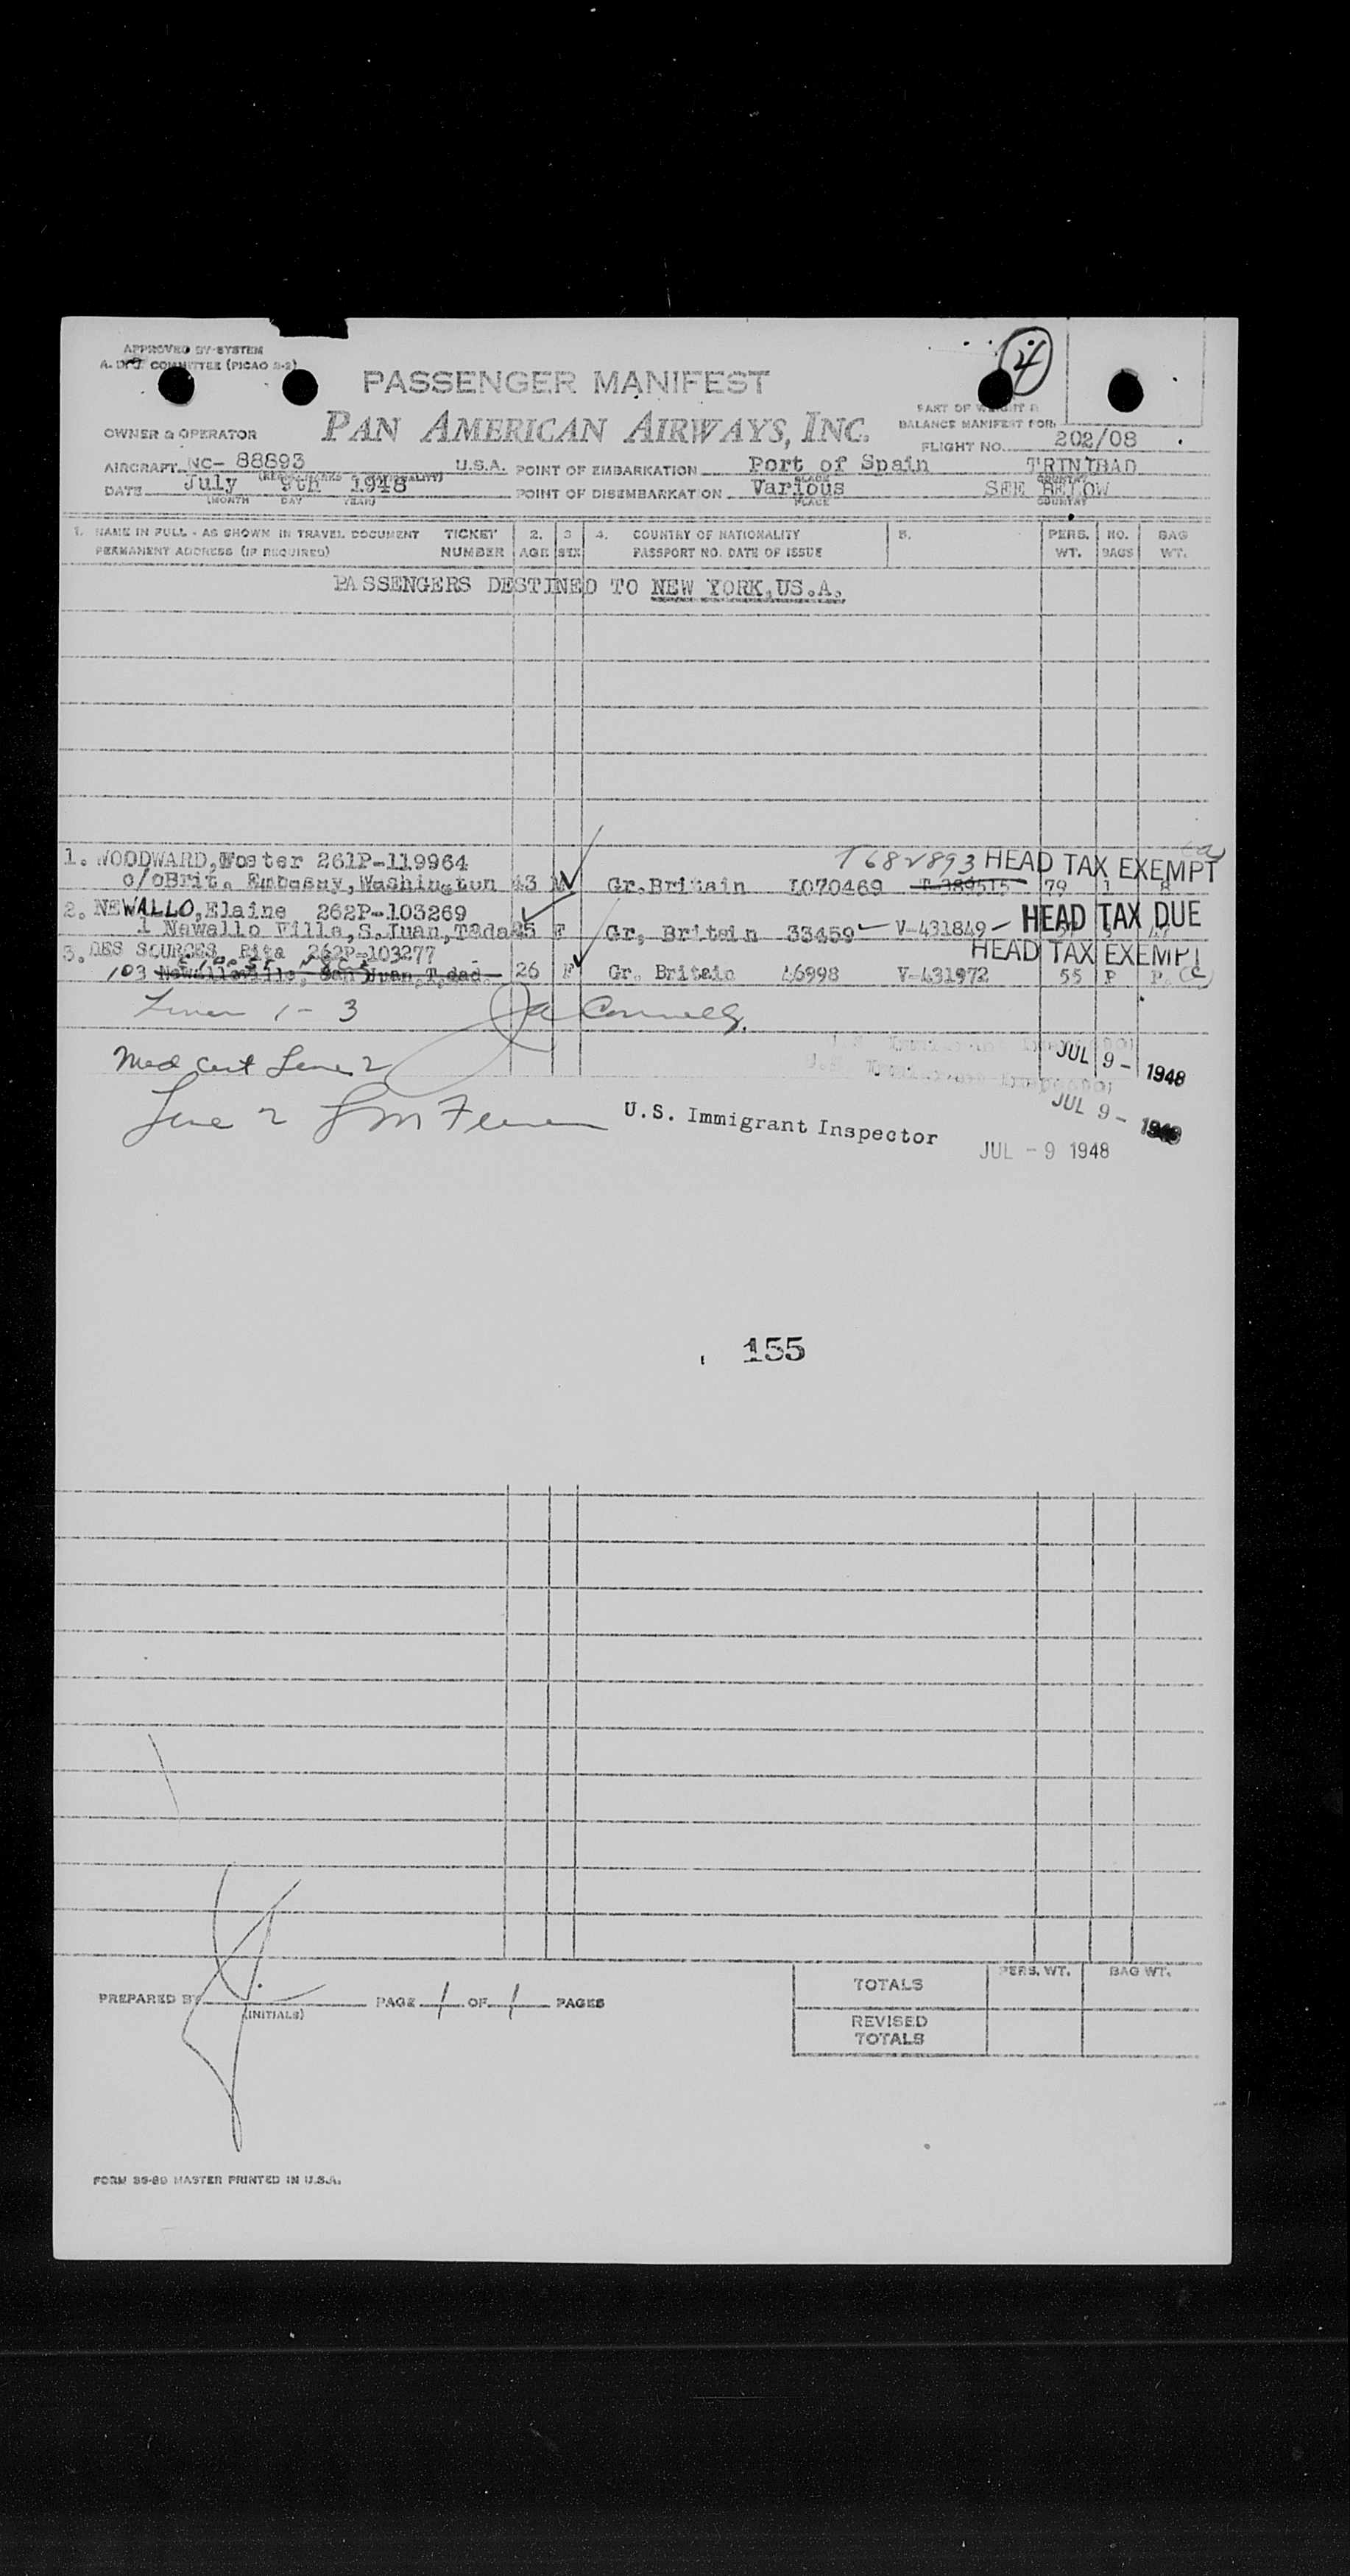 APPROVED BY SYSTEM
A. D. O. COMMITTEE (PICAO S-2)
4
PASSENGER MANIFEST
PART OF WEIGHT &
BALANCE MANIFEST FOR:
OWNER & OPERATOR PAN AMERICAN AIRWAYS, INC.
FLIGHT NO. 202/08
AIRCRAFT NC- 88893 U.S.A. POINT OF EMBARKATION Port of Spain TRINIDAD
DATE July 9th 1948 POINT OF DISEMBARKATION Various SEE BELOW
(MONTH DAY YEAR) PLACE COUNTRY
1. NAME IN FULL - AS SHOWN IN TRAVEL DOCUMENT TICKET 2. 3 4. COUNTRY OF NATIONALITY 5. PERS. NO. BAG
PERMANENT ADDRESS (IF REQUIRED) NUMBER AGE SEX PASSPORT NO. DATE OF ISSUE WT. BAGS WT.
PASSENGERS DESTINED TO NEW YORK, US.A.
1. WOODWARD, Foster 261P-119964 T682893 HEAD TAX EXEMPT
c/oBrit. Embassy, Washington 43 M Gr.Britain L070469 T-389515 79 1 8
2. NEWALLO, Elaine 262P-103269 HEAD TAX DUE
1 Newallo Ville, S.Juan, Tdad 25 F Gr, Britain 33459 V-431849
3. DES SOURCES, Rita 262P-103277 HEAD TAX EXEMPT
103 Newalloville, San Juan, T,dad. 26 F Gr. Britain 46998 V-431972 55 P P.
Lines 1 - 3 Connelly.
JUL 9 - 1948
Med Cert Line 2
JUL 9 - 1948
Line 2 U.S. Immigrant Inspector
JUL - 9 1948
155
PERS. WT. BAG WT.
TOTALS
PREPARED BY PAGE 1 OF 1 PAGES
(INITIALS)
REVISED
TOTALS
FORM 35-80 MASTER PRINTED IN U.S.A.